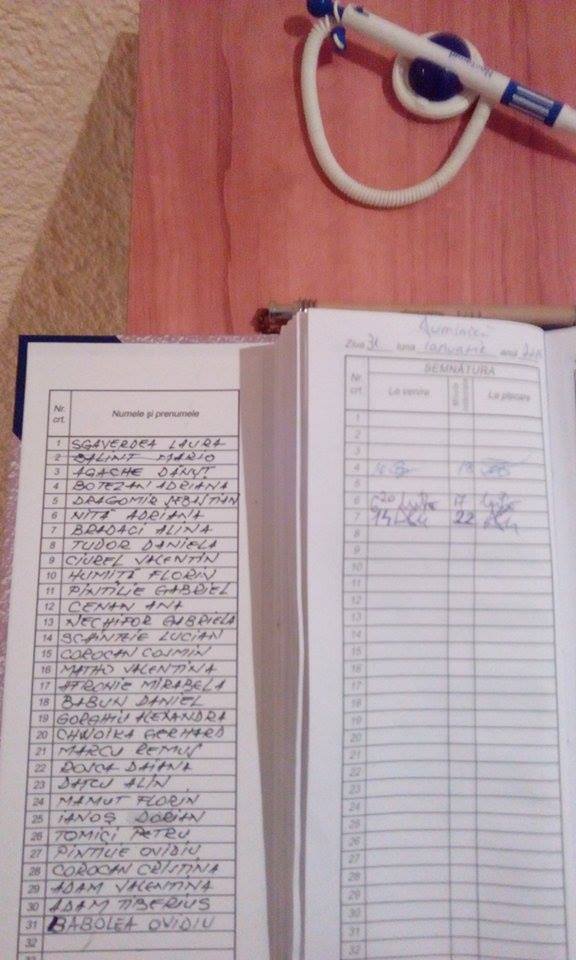 Duminică
Ziua 31 luna Ianuarie anul
Nr. crt. Numele și prenumele
1 SGAVERDEA LAURA
2 BALINT MARIO
3 AGACHE DĂNUȚ
4 BOTEZAN ADRIANA
5 DRAGOMIR SEBASTIAN
6 NIȚĂ ADRIANA
7 BRADACI ALINA
8 TUDOR DANIELA
9 CIUREL VALENTIN
10 HUMITĂ FLORIN
11 PINTILIE GABRIEL
12 CENAN ANA
13 NECHIFOR GABRIELA
14 SCÂNTEIE LUCIAN
15 COROCAN COSMIN
16 VALENTINA
17 AFRONIE MIRABELA
18 BABUN DANIEL
19 GORGHIU ALEXANDRA
20 CHWOIKA GERHARD
21 MARCU REMUȘ
22 ROȘCA DAIANA
23 DATCU ALIN
24 MAMUT FLORIN
25 IANOȘ DORIAN
26 TOMICI PETRU
27 PINTILIE OVIDIU
28 COROCAN CRISTINA
29 ADAM VALENTINA
30 ADAM TIBERIUS
31 BABOLEA OVIDIU
32
SEMNĂTURA
Nr. crt. La venire La plecare
1
2
3
4
5
6 17
7 14 22
8
9
10
11
12
13
14
15
16
17
18
19
20
21
22
23
24
25
26
27
28
29
30
31
32